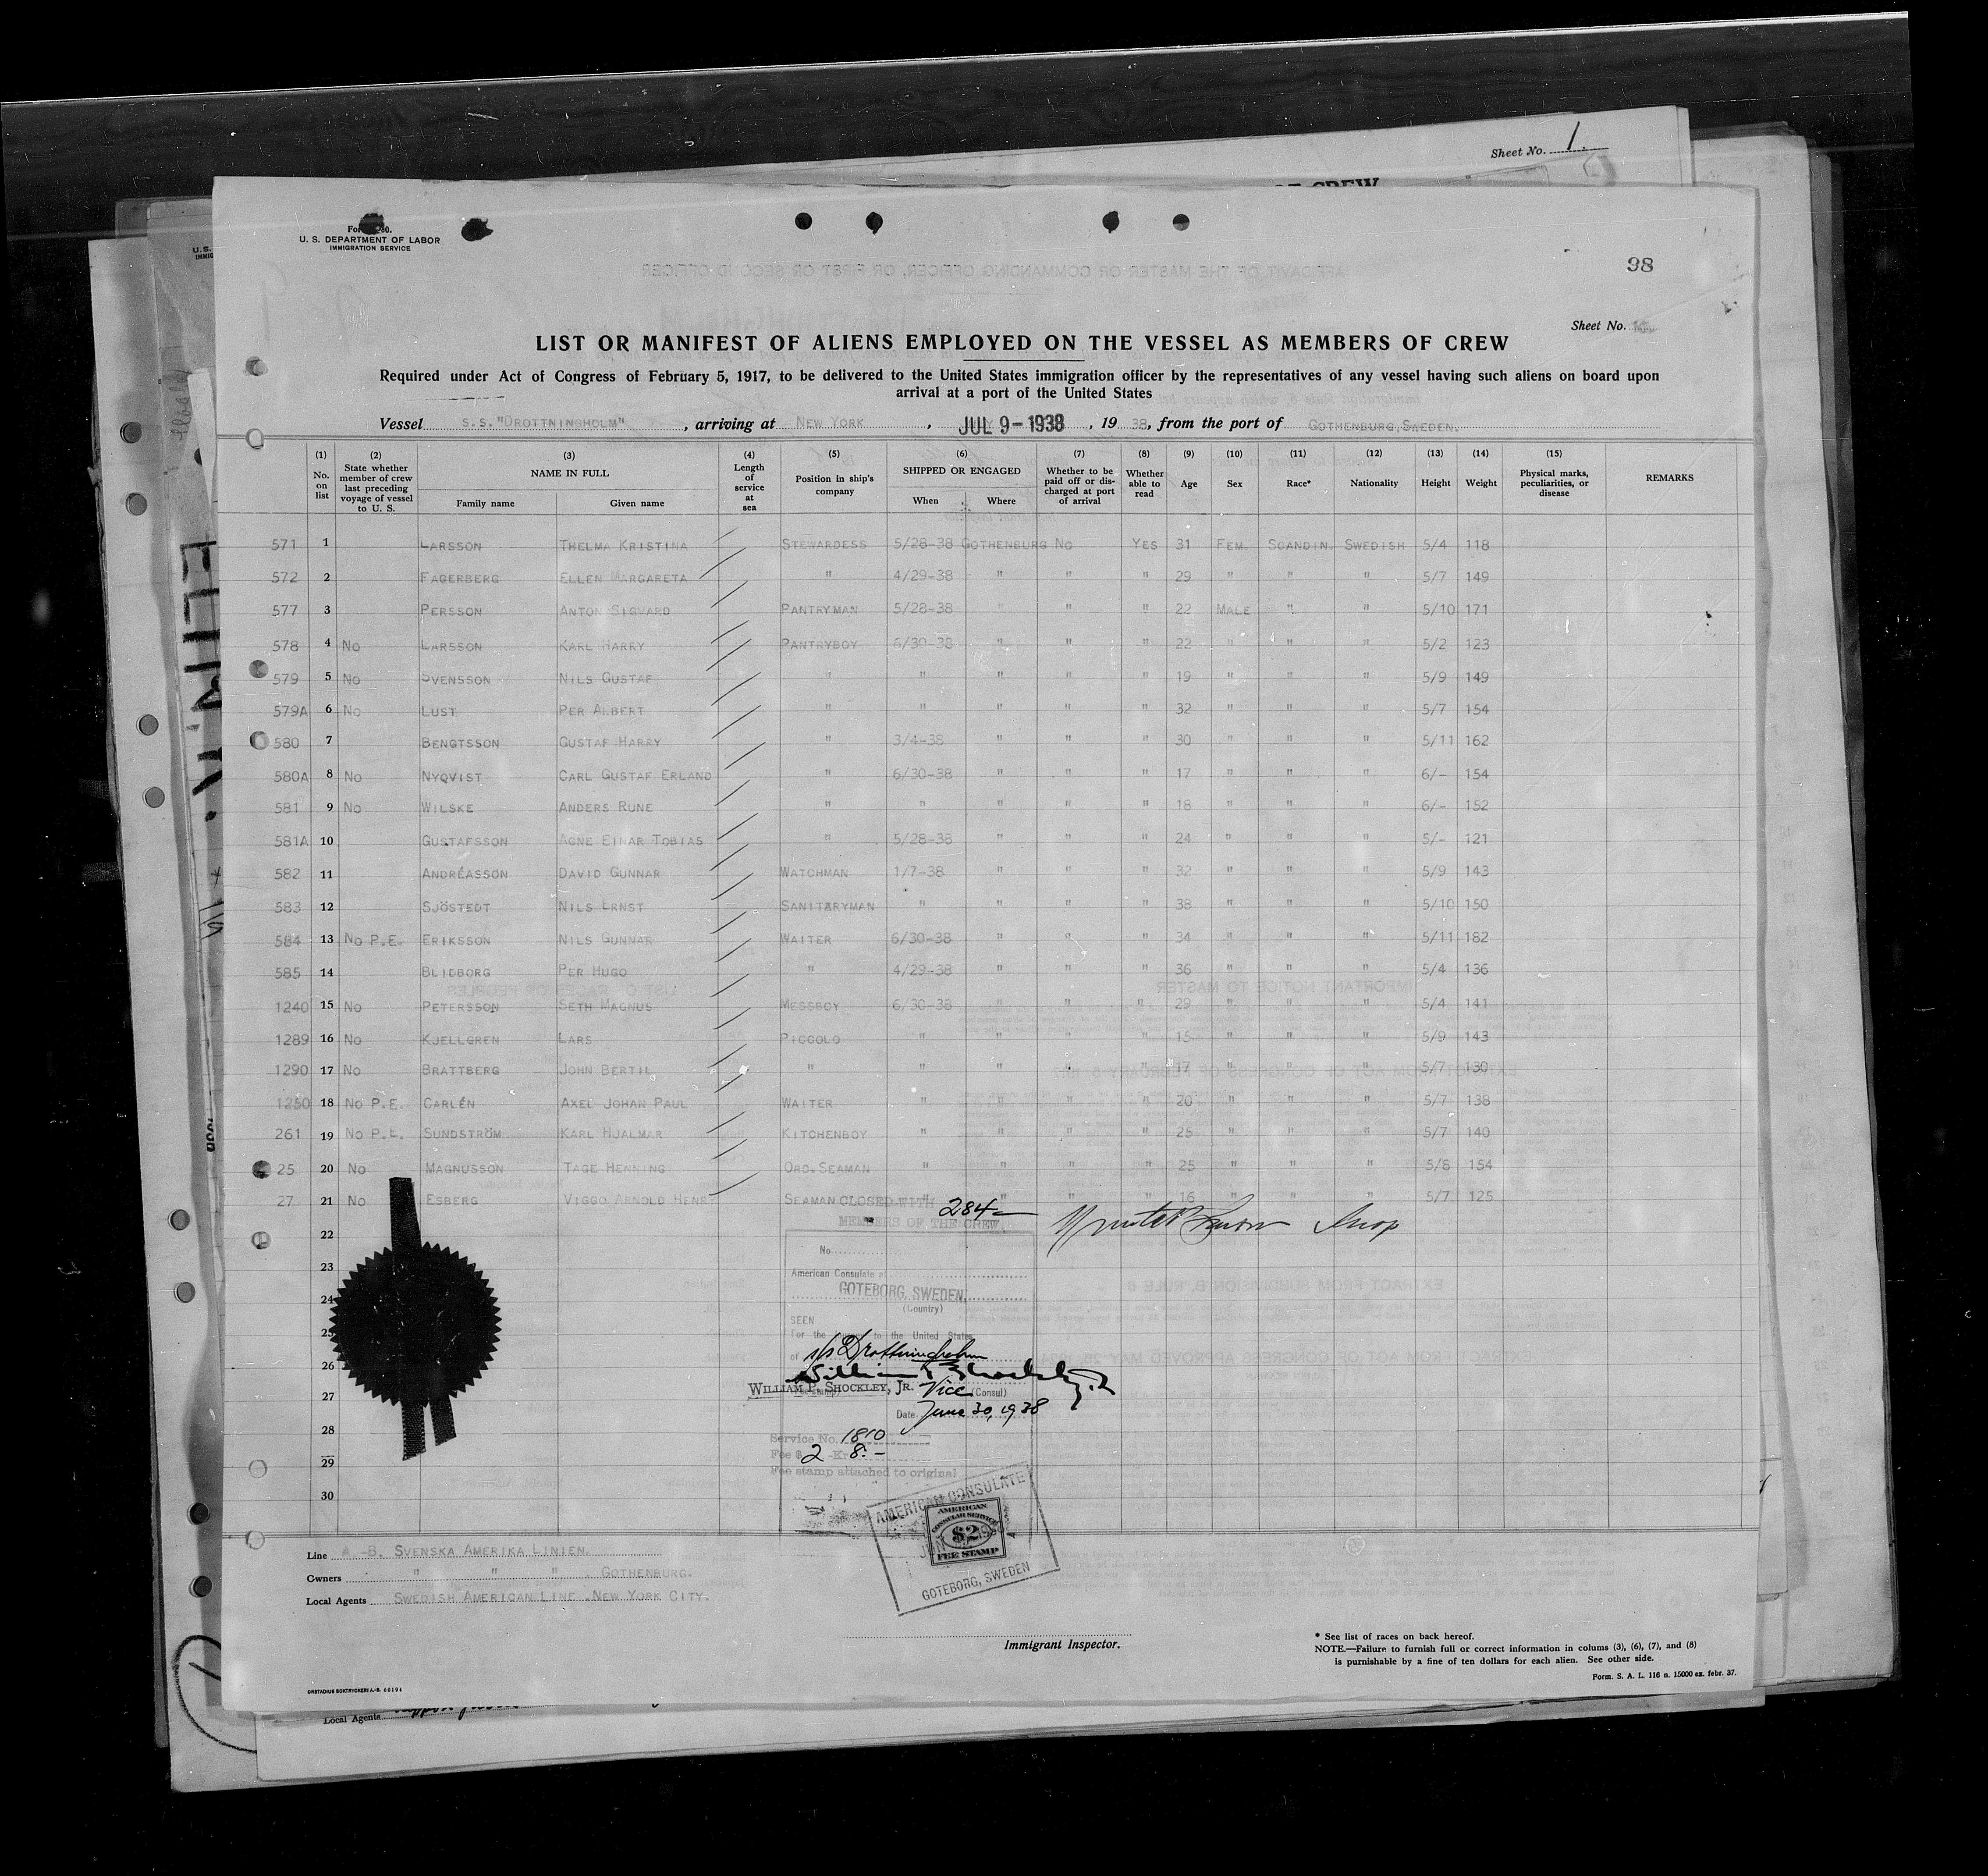 Sheet No. 1.
Form 680.
U. S. DEPARTMENT OF LABOR
IMMIGRATION SERVICE
38
Sheet No.
LIST OR MANIFEST OF ALIENS EMPLOYED ON THE VESSEL AS MEMBERS OF CREW
Required under Act of Congress of February 5, 1917, to be delivered to the United States immigration officer by the representatives of any vessel having such aliens on board upon
arrival at a port of the United States
Vessel S.S. "DROTTNINGHOLM", arriving at NEW YORK, JUL 9-1938, 19 38, from the port of GOTHENBURG, SWEDEN.
(1) No. on list (2) State whether member of crew last preceding voyage of vessel to U. S. (3) NAME IN FULL Family name Given name (4) Length of service at sea (5) Position in ship's company (6) SHIPPED OR ENGAGED When Where (7) Whether to be paid off or discharged at port of arrival (8) Whether able to read (9) Age (10) Sex (11) Race* (12) Nationality (13) Height (14) Weight (15) Physical marks, peculiarities, or disease REMARKS
571 1 LARSSON THELMA KRISTINA STEWARDESS 5/28-38 GOTHENBURG NO YES 31 FEM. SCANDIN. SWEDISH 5/4 118
572 2 FAGERBERG ELLEN MARGARETA " 4/29-38 " " " 29 " " " 5/7 149
577 3 PERSSON ANTON SIGVARD PANTRYMAN 5/28-38 " " " 22 MALE " " 5/10 171
578 4 NO LARSSON KARL HARRY PANTRYBOY 6/30-38 " " " 22 " " " 5/2 123
579 5 NO SVENSSON NILS GUSTAF " " " " " 19 " " " 5/9 149
579A 6 NO LUST PER ALBERT " " " " " 32 " " " 5/7 154
580 7 BENGTSSON GUSTAF HARRY " 3/4-38 " " " 30 " " " 5/11 162
580A 8 NO NYQVIST CARL GUSTAF ERLAND " 6/30-38 " " " 17 " " " 6/- 154
581 9 NO WILSKE ANDERS RUNE " " " " " 18 " " " 6/- 152
581A 10 GUSTAFSSON AGNE EINAR TOBIAS " 5/28-38 " " " 24 " " " 5/- 121
582 11 ANDRÉASSON DAVID GUNNAR WATCHMAN 1/7-38 " " " 32 " " " 5/9 143
583 12 SJÖSTEDT NILS ERNST SANITARYMAN " " " " 38 " " " 5/10 150
584 13 NO P.E. ERIKSSON NILS GUNNAR WAITER 6/30-38 " " " 34 " " " 5/11 182
585 14 BLIDBORG PER HUGO " 4/29-38 " " " 36 " " " 5/4 136
1240 15 NO PETERSSON SETH MAGNUS MESSBOY 6/30-38 " " " 29 " " " 5/4 141
1289 16 NO KJELLGREN LARS PICCOLO " " " " 15 " " " 5/9 143
1290 17 NO BRATTBERG JOHN BERTIL " " " " " 17 " " " 5/7 130
1250 18 NO P.E. CARLÉN AXEL JOHAN PAUL WAITER " " " " 20 " " " 5/7 138
261 19 NO P.E. SUNDSTRÖM KARL HJALMAR KITCHENBOY " " " " 25 " " " 5/7 140
25 20 NO MAGNUSSON TAGE HENNING ORD. SEAMAN " " " " 25 " " " 5/8 154
27 21 NO ESBERG VIGGO ARNOLD HENRY SEAMAN " " " " 16 " " " 5/7 125
CLOSED WITH 284-
MEMBERS OF THE CREW.
22
23
24
25
26
27
28
29
30
No.
American Consulate at
GOTEBORG, SWEDEN,
(Country)
SEEN
For the to the United States
of s/s Drottningholm
William P. Shockley, Jr.
WILLIAM P. SHOCKLEY, JR. Vice (Consul)
Date June 30, 1938
Service No. 1810
Fee $ 2 -Kr. 8:-
Fee stamp attached to original
AMERICAN CONSULATE
AMERICAN
CONSULAR SERVICE
$2
FEE STAMP
GOTEBORG, SWEDEN
Line A-B. SVENSKA AMERIKA LINIEN.
Owners " " " GOTHENBURG.
Local Agents SWEDISH AMERICAN LINE. NEW YORK CITY.
Immigrant Inspector.
* See list of races on back hereof.
NOTE.—Failure to furnish full or correct information in colums (3), (6), (7), and (8)
is punishable by a fine of ten dollars for each alien. See other side.
Form. S. A. L. 116 n. 15000 ex. febr. 37.
Local Agents